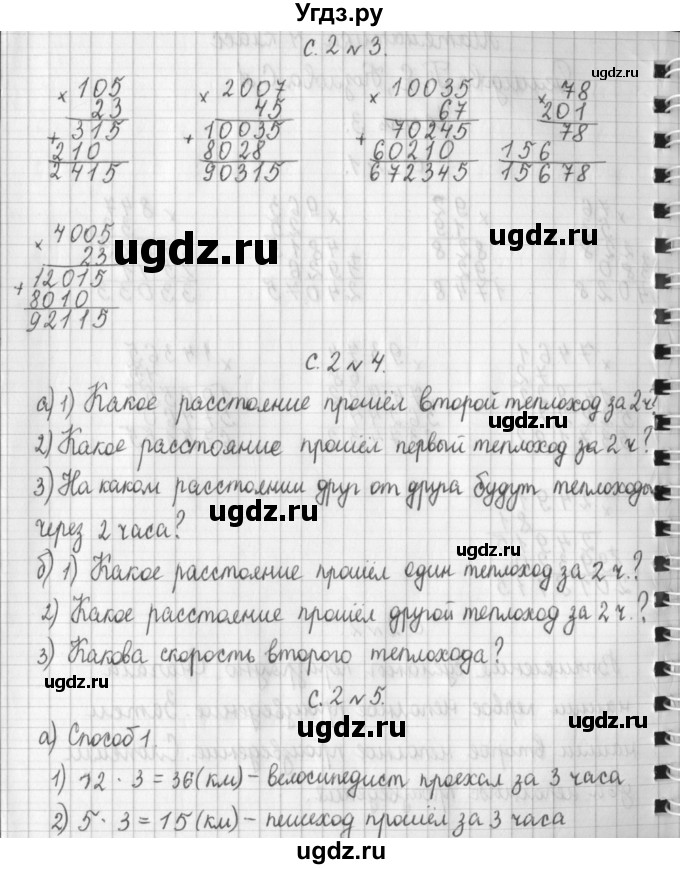 Угдз.ру
с. 2 № 3.
× 105
23
+ 315
210
2415
× 2007
45
+ 10035
8028
90315
× 10035
67
+ 70245
60210
672345
× 78
201
78
156
15678
× 4005
23
+ 12015
8010
92115
с. 2 № 4.
а) 1) Какое расстояние прошёл второй теплоход за 2 ч?
2) Какое расстояние прошёл первый теплоход за 2 ч?
3) На каком расстоянии друг от друга будут теплоходы
через 2 часа?
б) 1) Какое расстояние прошёл один теплоход за 2 ч.?
2) Какое расстояние прошёл другой теплоход за 2 ч.?
3) Какова скорость второго теплохода?
с. 2 № 5.
а) Способ 1.
1) 12 · 3 = 36 (км) – велосипедист проехал за 3 часа
2) 5 · 3 = 15 (км) – пешеход прошёл за 3 часа
ugdz.ru
ugdz.ru
ugdz.ru
ugdz.ru
ugdz.ru
ugdz.ru
ugdz.ru
ugdz.ru
ugdz.ru
ugdz.ru
ugdz.ru
ugdz.ru